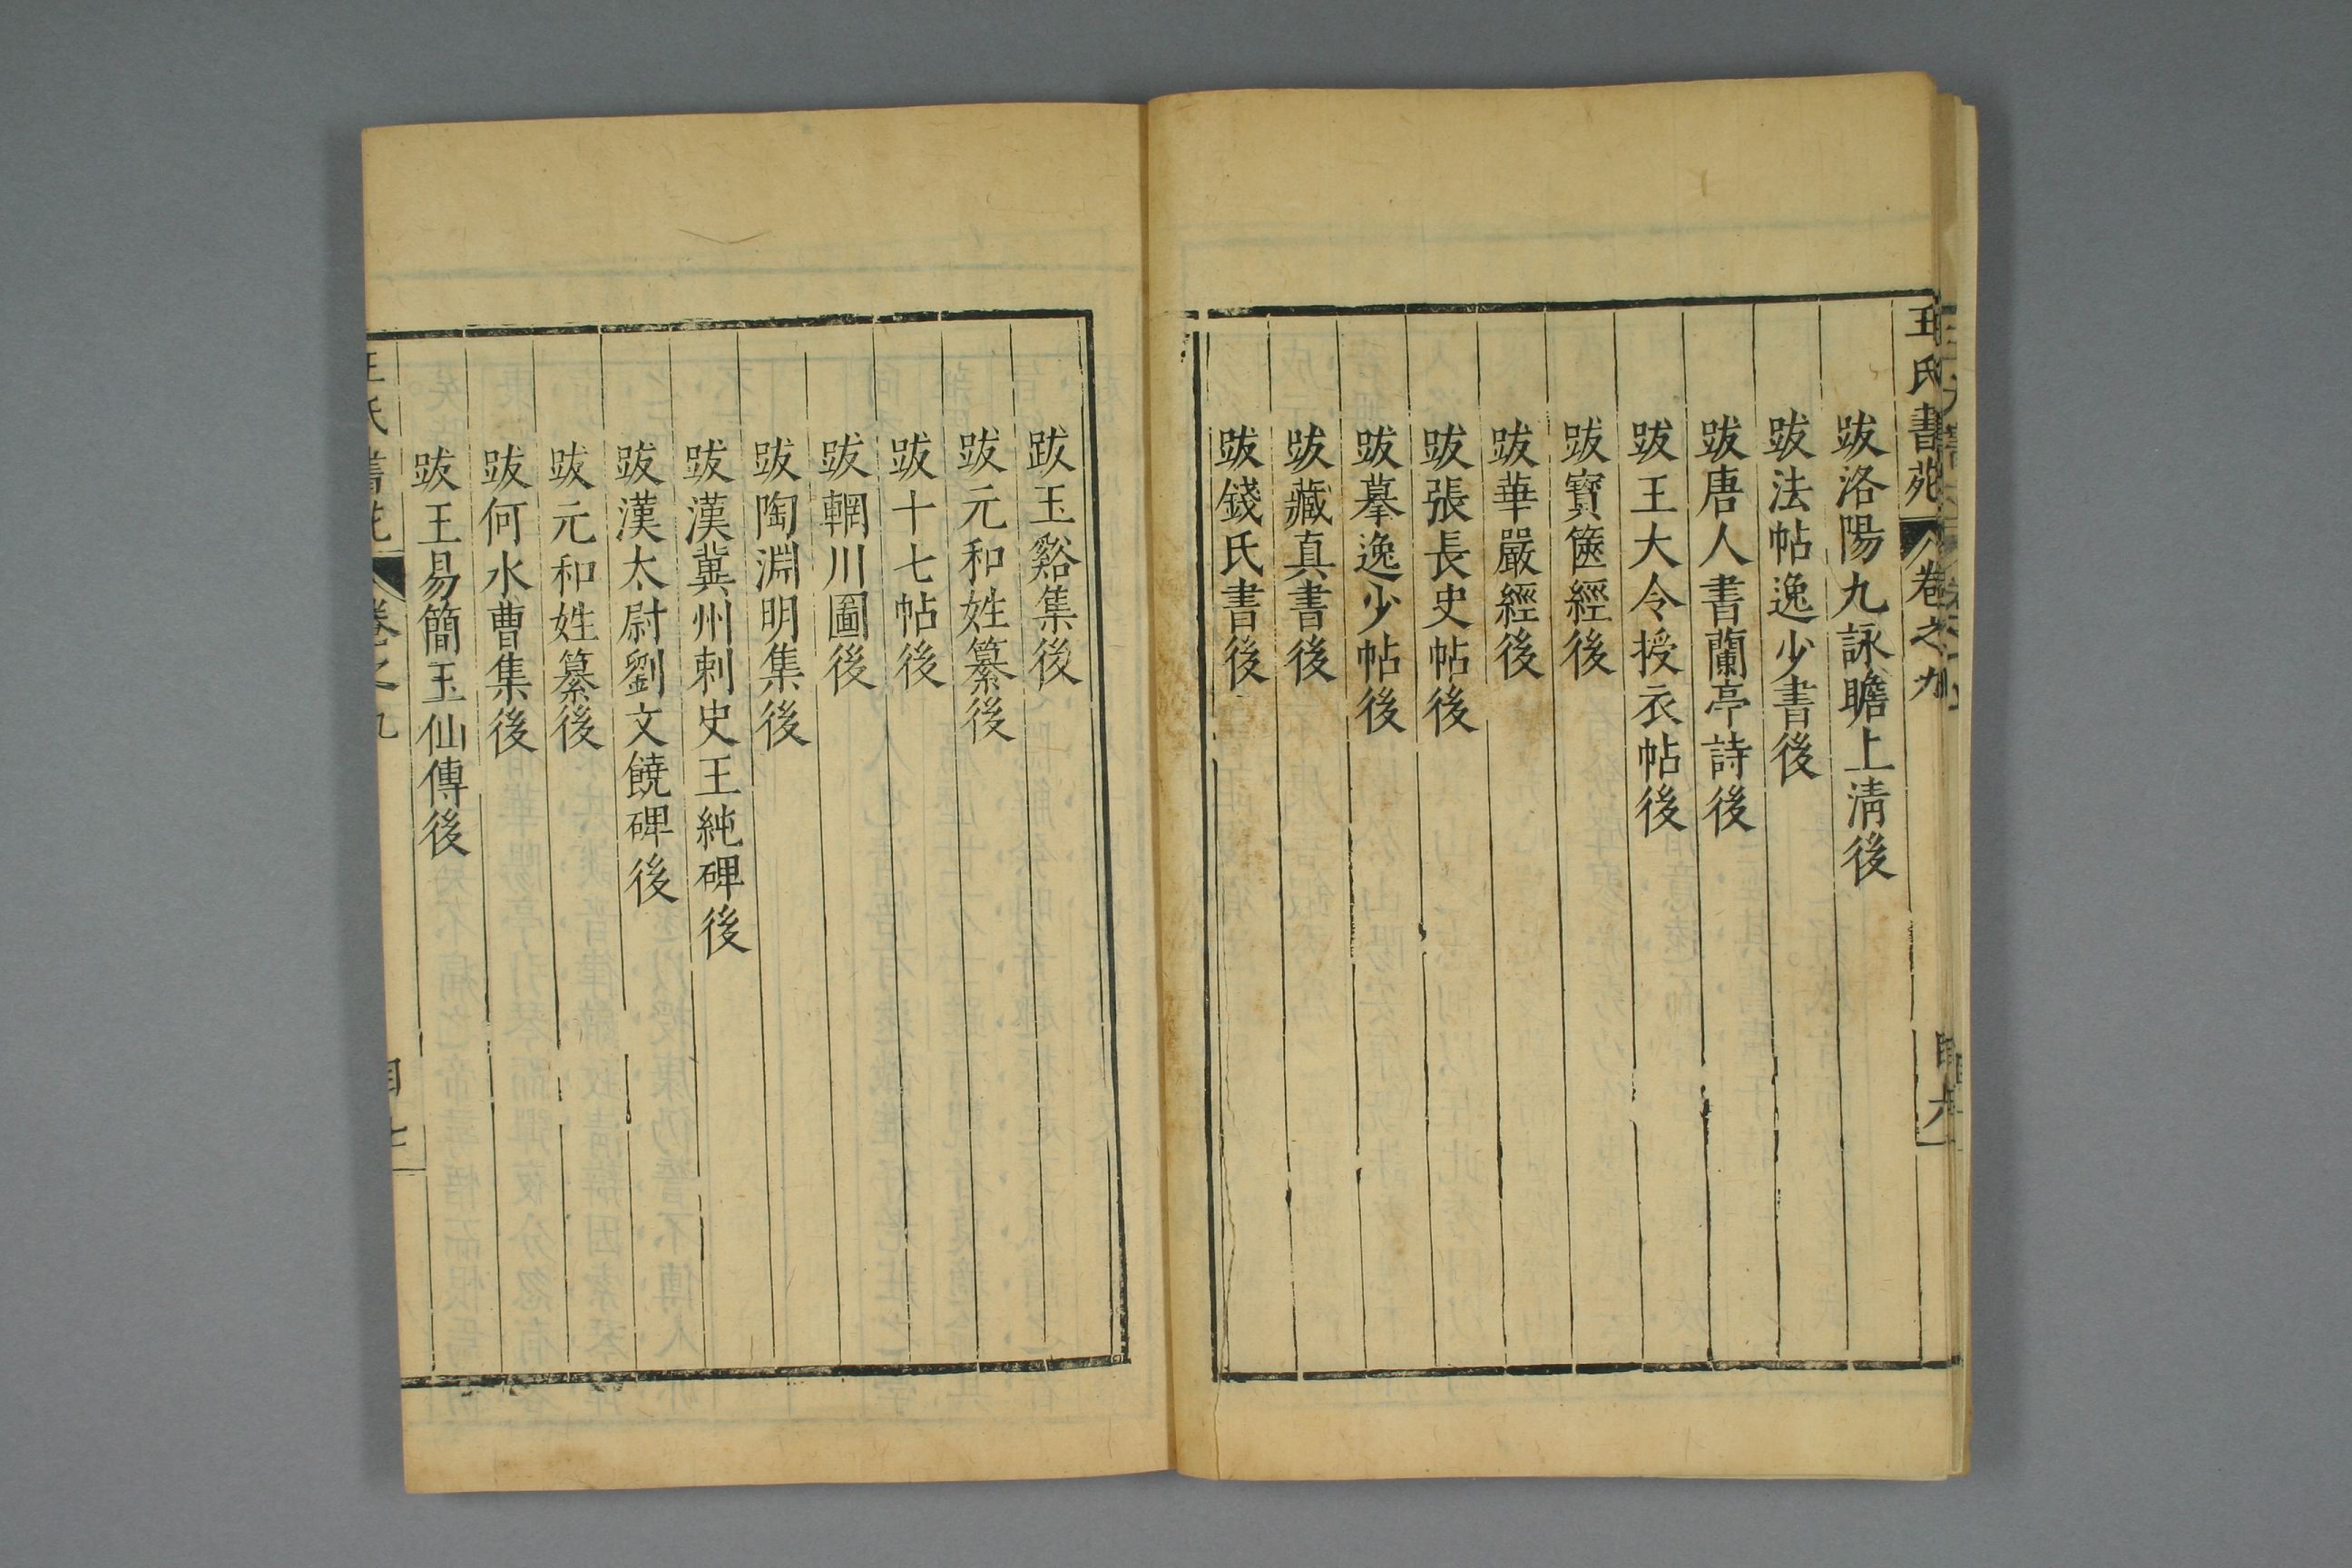 王氏書苑 卷之九
跋洛陽九詠瞻上清後
跋法帖逸少書後
跋唐人書蘭亭詩後
跋王大令授衣帖後
跋寶篋經後
跋華嚴經後
跋張長史帖後
跋摹逸少帖後
跋藏真書後
跋錢氏書後
跋玉谿集後
跋元和姓纂後
跋十七帖後
跋輞川圖後
跋陶淵明集後
跋漢冀州刺史王純碑後
跋漢太尉劉文饒碑後
跋元和姓纂後
跋何水曹集後
跋王易簡玉仙傳後